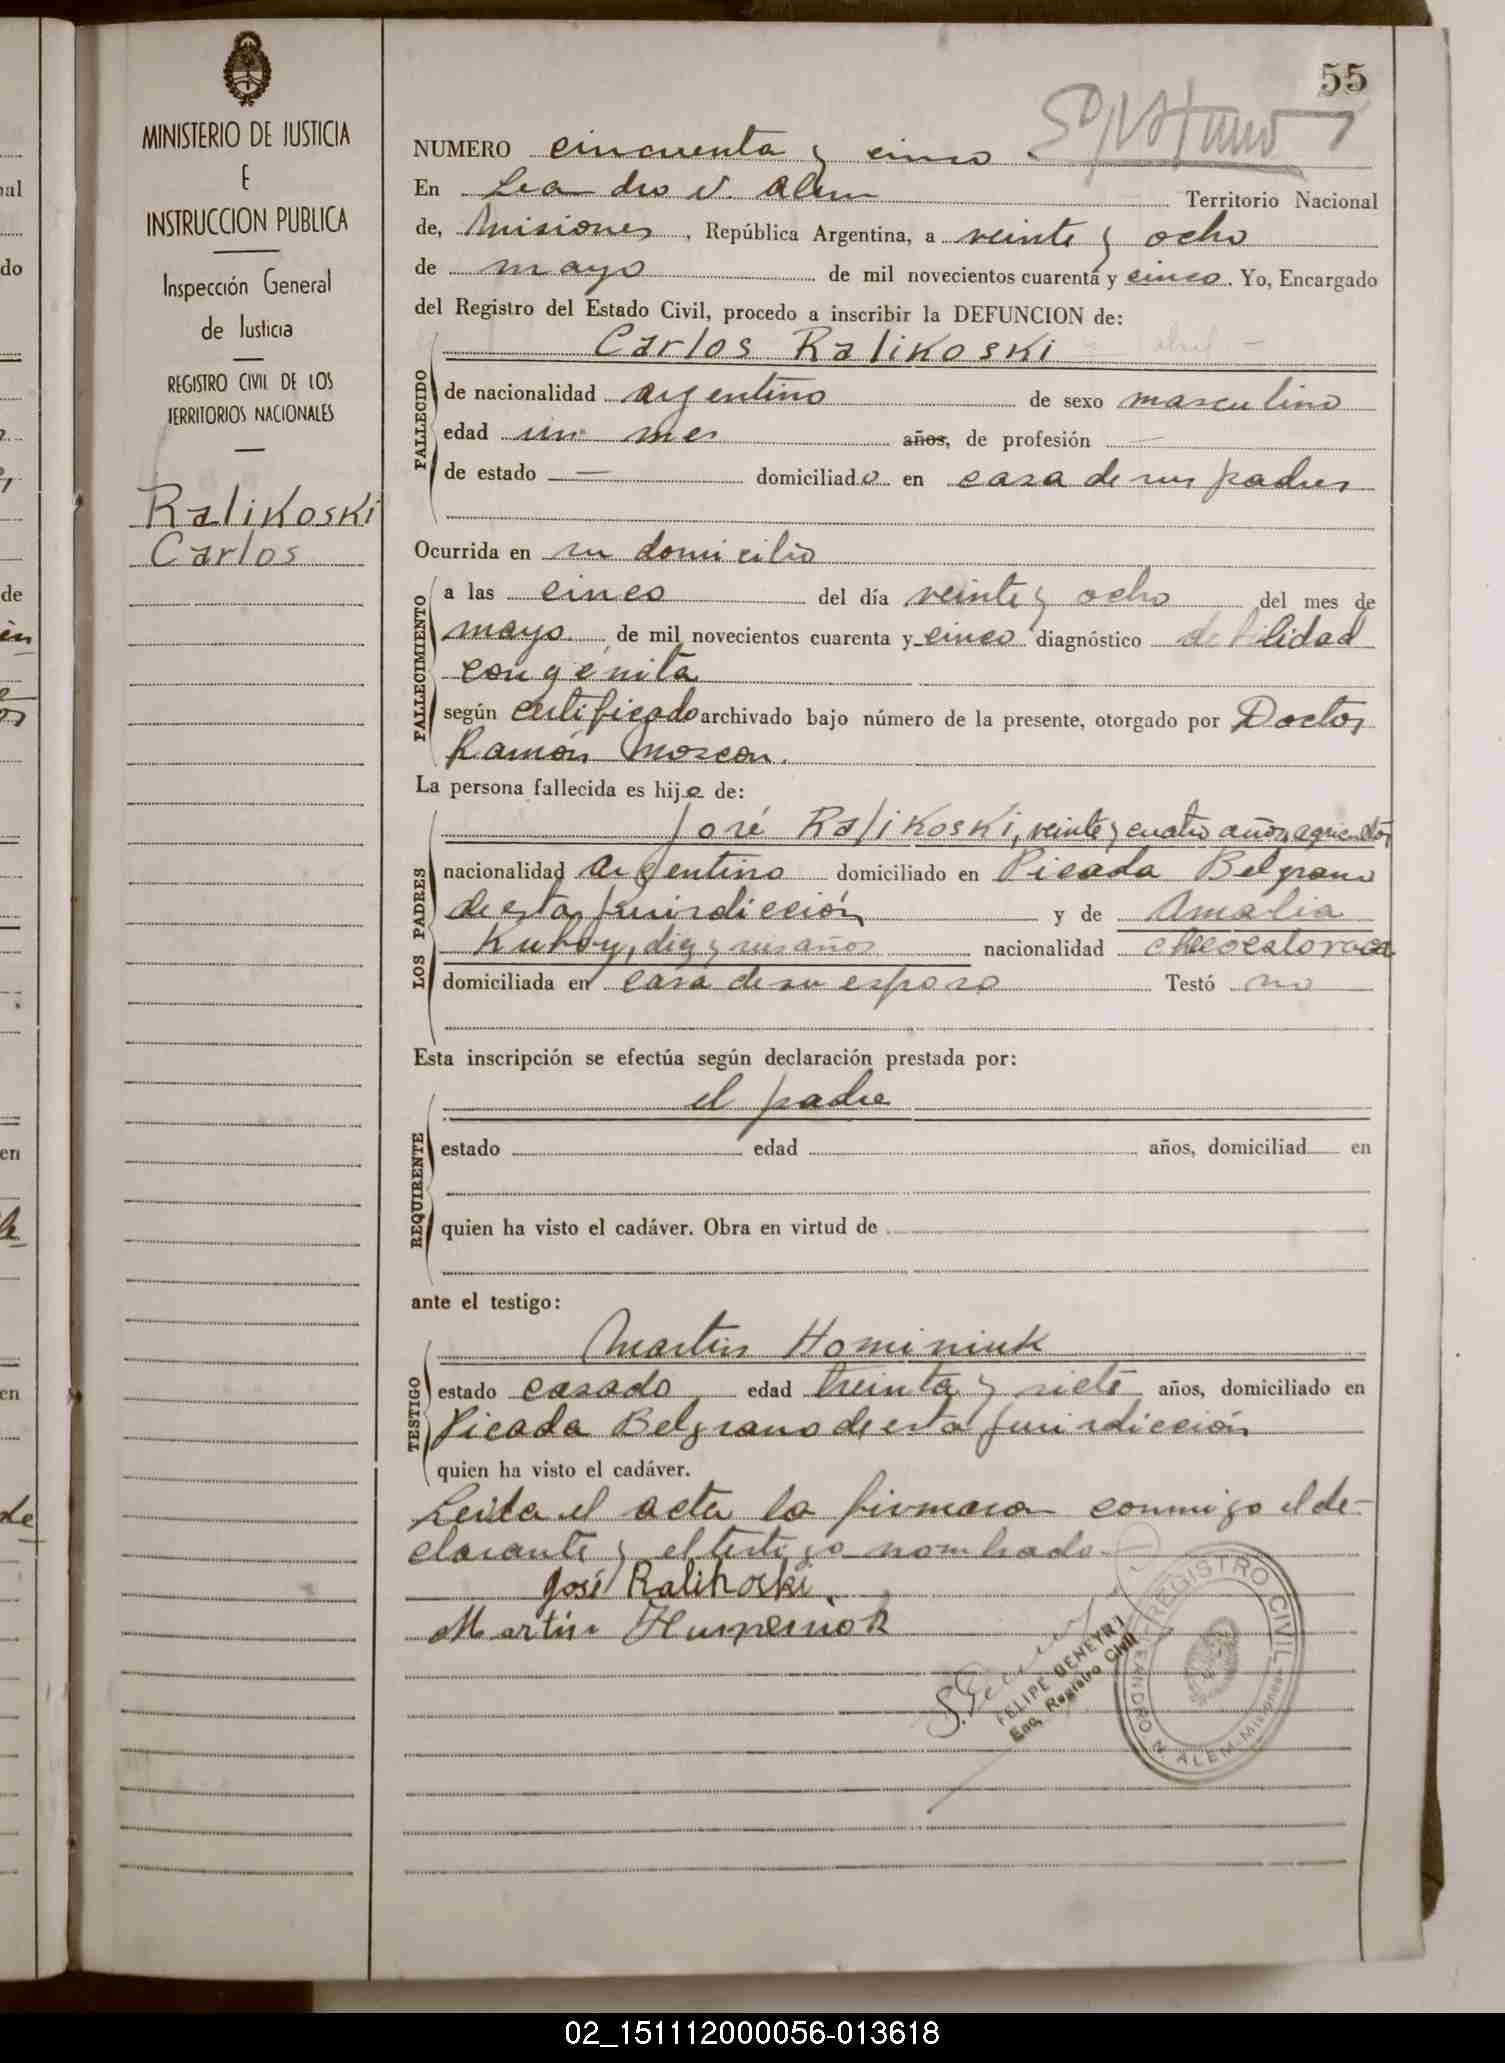 55
MINISTERIO DE JUSTICIA
E
INSTRUCCION PUBLICA
Inspección General
de Justicia
REGISTRO CIVIL DE LOS
TERRITORIOS NACIONALES
Ralikoski
Carlos
NUMERO cincuenta y cinco
En Leandro N. Alem Territorio Nacional
de, Misiones, República Argentina, a veinte y ocho
de mayo de mil novecientos cuarenta y cinco. Yo, Encargado
del Registro del Estado Civil, procedo a inscribir la DEFUNCION de:
Carlos Ralikoski
FALLECIDO
de nacionalidad argentino de sexo masculino
edad un mes años, de profesión —
de estado — domiciliado en casa de sus padres
Ocurrida en su domicilio
FALLECIMIENTO
a las cinco del día veinte y ocho del mes de
mayo de mil novecientos cuarenta y cinco diagnóstico debilidad
congénita
según certificado archivado bajo número de la presente, otorgado por Doctor
Ramón
La persona fallecida es hijo de:
LOS PADRES
José Ralikoski, veinte y cuatro años, agricultor
nacionalidad argentino domiciliado en Picada Belgrano
de esta jurisdicción y de Amalia
diez y seis años nacionalidad
domiciliada en casa de su esposo Testó no
Esta inscripción se efectúa según declaración prestada por:
el padre
REQUIRENTE
estado edad años, domiciliad en
quien ha visto el cadáver. Obra en virtud de
ante el testigo:
Martin Hominiuk
TESTIGO
estado casado edad treinta y siete años, domiciliado en
Picada Belgrano de esta jurisdicción
quien ha visto el cadáver.
Leida el acta la firmaron conmigo el de-
clarante y el testigo nombrado
José Ralikoski
Martin
FELIPE GENEYRI
Enc. Registro Civil
REGISTRO CIVIL
LEANDRO N. ALEM-Misiones
02_151112000056-013618